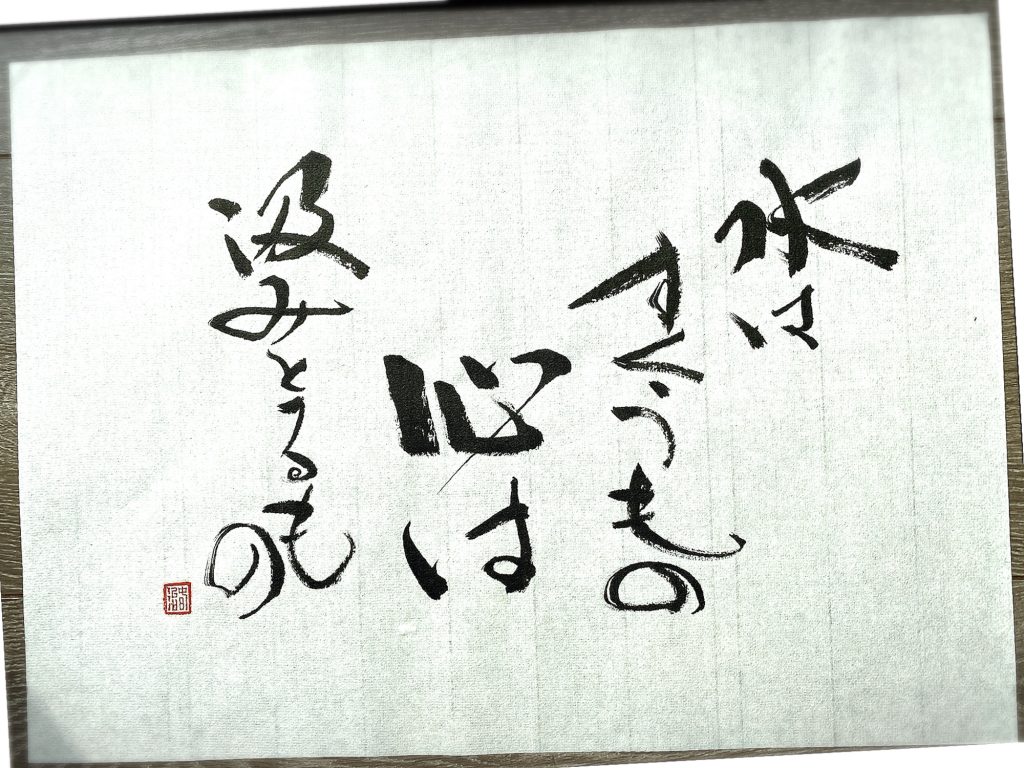 水は
すくうもの
心は
汲みとるもの